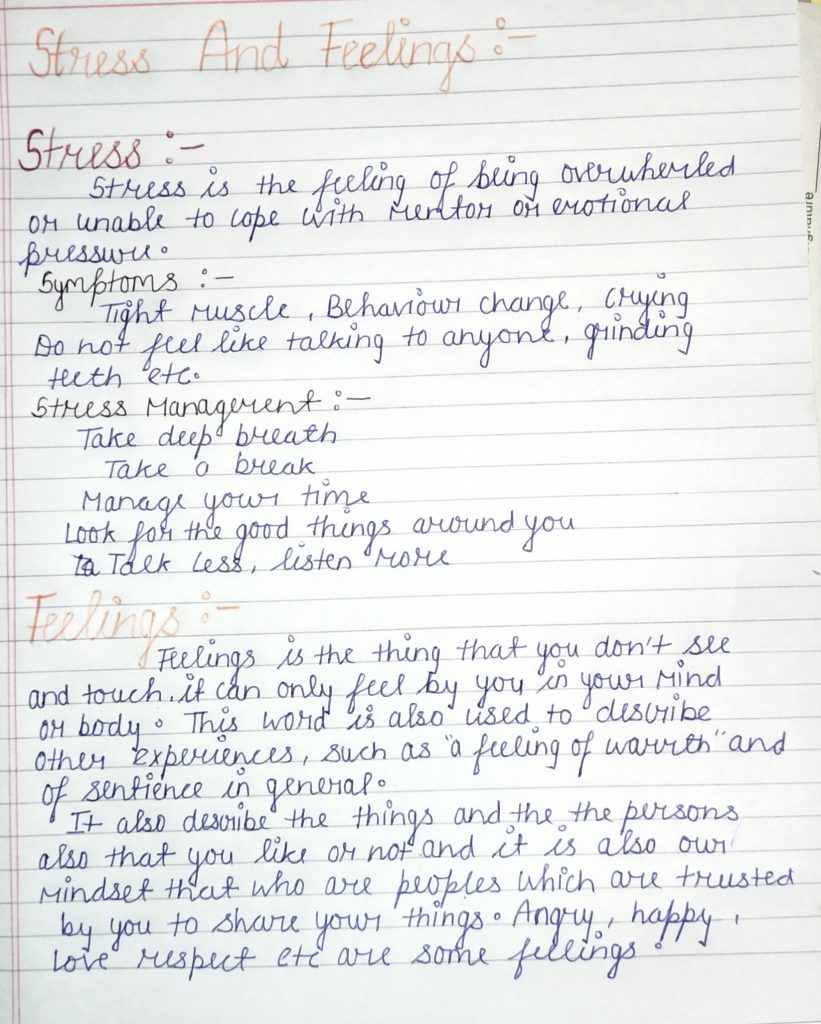 Stress And Feelings :-
Stress :-
Stress is the feeling of being overwhermled
or unable to cope with mentor or emotional
pressure.
Symptoms :-
Tight muscle, Behaviour change, crying
Do not feel like talking to anyone, grinding
teeth etc.
Stress Management :-
Take deep breath
Take a break
Manage your time
Look for the good things around you
Talk less, listen more
Feelings :-
Feelings is the thing that you don't see
and touch. it can only feel by you in your mind
or body. This word is also used to describe
other experiences, such as "a feeling of warmth" and
of sentience in general.
It also describe the things and the the persons
also that you like or not and it is also our
mindset that who are peoples which are trusted
by you to share your things. Angry, happy,
love respect etc are some feelings.